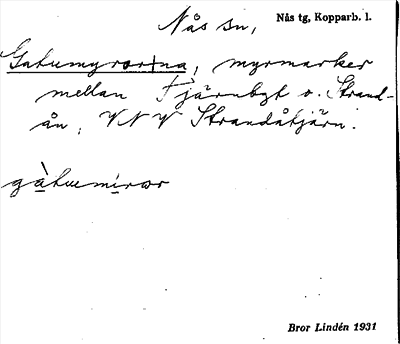 Nås sn, Nås tg, Kopparb. l.
Gatumyrorna, myrmarker
mellan Tjärnbyt o. Strand-
ån, VNV Strandåtjärn.
gàtumiror
Bror Lindén 1931